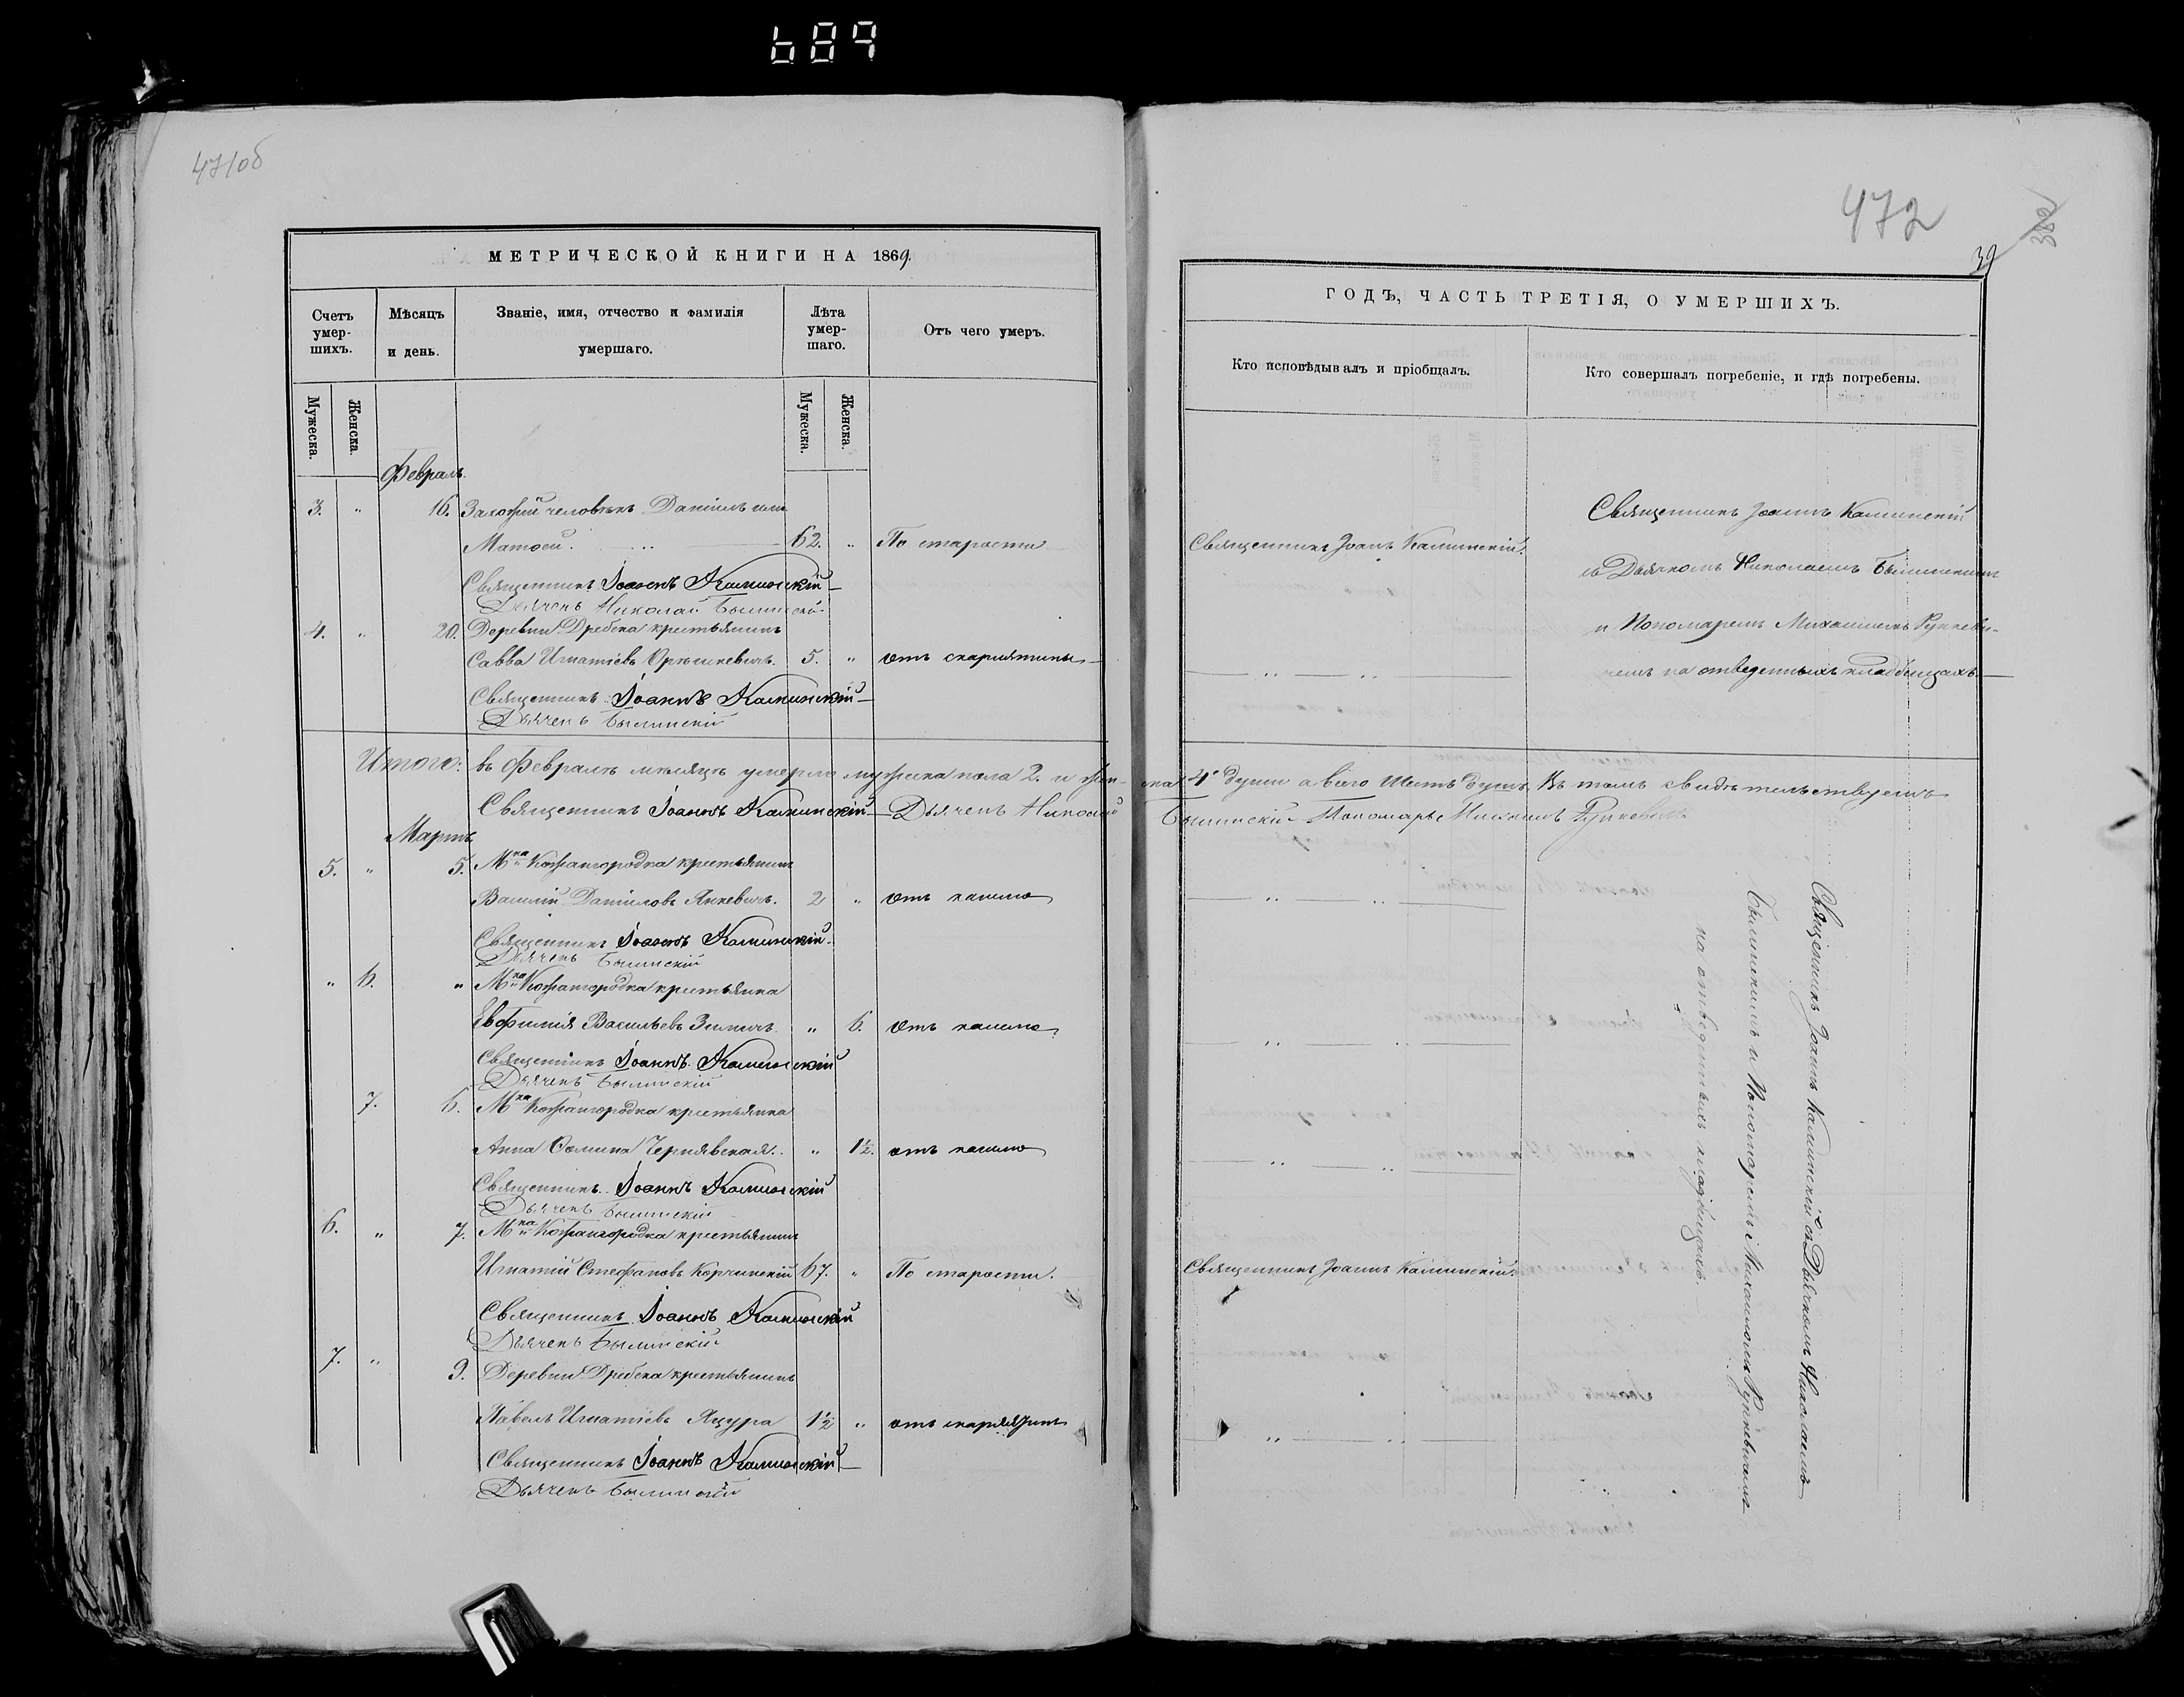 689
471об
МЕТРИЧЕСКОЙ КНИГИ НА 1869.
Счетъ умершихъ.
Мѣсяцъ и день.
Званіе, имя, отчество и фамилія умершаго.
Лѣта умершаго.
Отъ чего умеръ.
Мужеска.
Женска.
Мужеска.
Женска.
Февраль.
3. „ 16. Захожій человѣкъ Даніилъ или
Матѳей. 62. „ По старости
Священникъ Іоаннъ Калинскій
Дьячекъ Николай Былинскій
4. „ 20. Деревни Дребска крестьянинъ
Савва Игнатіевъ Орѣшкевичъ. 5. „ отъ скарлятины
Священникъ Іоаннъ Калинскій
Дьячекъ Былинскій
Итого: въ Февралѣ мѣсяцѣ умерло мужеска пола 2. и жен-
Священникъ Іоаннъ Калинскій Дьячекъ Николай
Мартъ
5. „ 5. М-ка Кожангородка крестьянинъ
Василій Даніиловъ Янкевичъ. 2 „ отъ кашлю
Священникъ Іоаннъ Калинскій
Дьячекъ Былинскій
„ 6. „ М-ка Кожангородка крестьянка
Евфимія Васильевъ Зимичъ. „ 6. отъ кашлю
Священникъ Іоаннъ Калинскій
Дьячекъ Былинскій
7. 6. М-ка Кожангородка крестьянка
Анна Ѳомина Чернявская. „ 1½. отъ кашлю
Священникъ Іоаннъ Калинскій
Дьячекъ Былинскій
6. „ 7. М-ка Кожангородка крестьянинъ
Игнатій Стефановъ Корчинскій 67. „ По старости.
Священникъ Іоаннъ Калинскій
Дьячекъ Былинскій
7. „ 9. Деревни Дребска крестьянинъ
Павелъ Игнатіевъ Яцура 1½ „ отъ
Священникъ Іоаннъ Калинскій
Дьячекъ Былинскій
472
382
39
ГОДЪ, ЧАСТЬ ТРЕТІЯ, О УМЕРШИХЪ.
Кто исповѣдывалъ и пріобщалъ.
Кто совершалъ погребеніе, и гдѣ погребены.
Священникъ Іоаннъ Калинскій.
Священникъ Іоаннъ Калинскій
съ Дьячкомъ Николаемъ Былинскимъ
и Пономаремъ Михаиломъ Рункеви-
чемъ на отведенныхъ кладбищахъ.
ска 4 души а всего шесть душъ Въ томъ свидѣтельствуемъ
Былинскій Пономарь Михаилъ Рункевичъ
Священникъ Іоаннъ Калинскій съ Дьячкомъ Николаемъ
Былинскимъ и Пономаремъ Михаиломъ Рункевичемъ
на отведенныхъ кладбищахъ.
Священникъ Іоаннъ Калинскій.